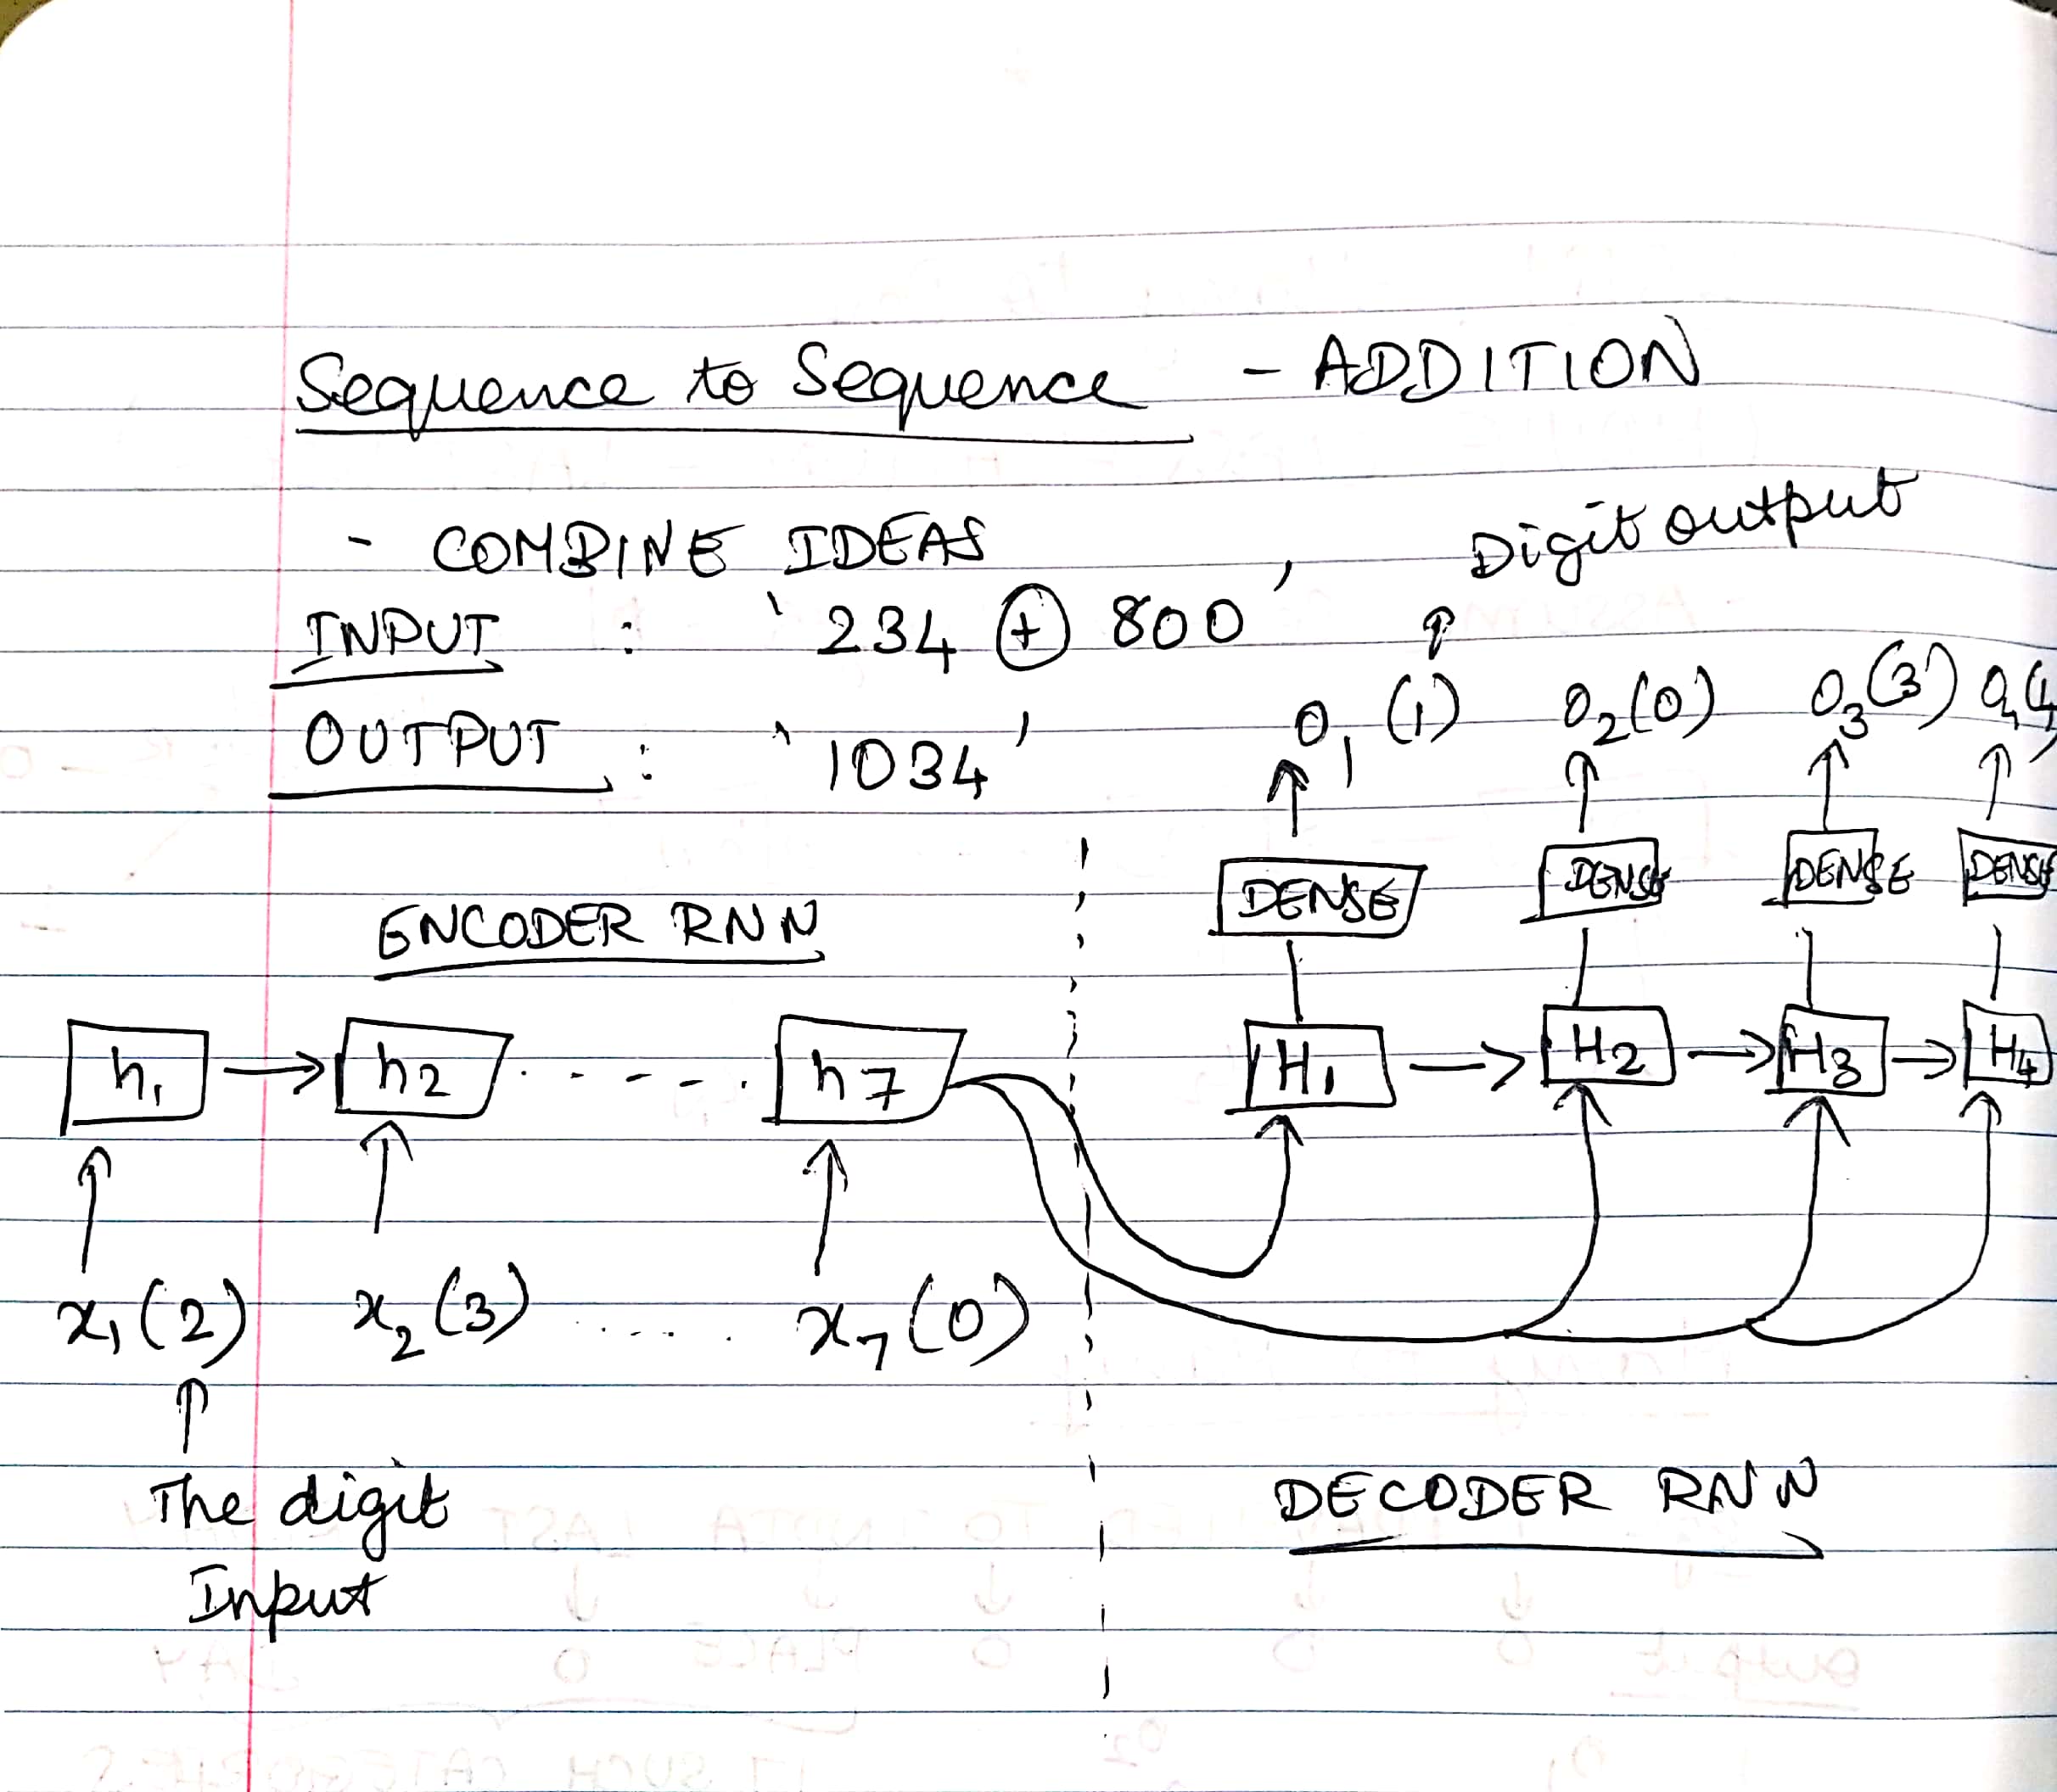 Sequence to Sequence - ADDITION
- COMBINE IDEAS
Digit output
INPUT : '234 + 800'
OUTPUT : '1034'
O₁ (1) O₂ (0) O₃ (3) O₄ (4
DENSE DENSE DENSE DENSE
ENCODER RNN
h₁ → h₂ ..... h₇
H₁ → H₂ → H₃ → H₄
x₁ (2) x₂ (3) ..... x₇ (0)
The digit
Input
DECODER RNN